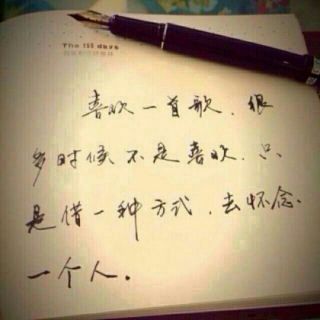 The 155 days
喜欢一首歌,很
多时候不是喜欢,只
是借一种方式,去怀念
一个人。